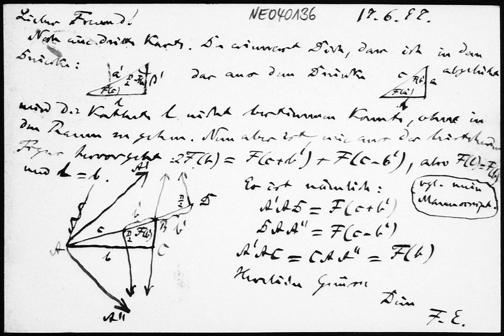 Lieber Freund! NE040136 17.6.88.
Noch eine dritte Karte. Du erinnerst Dich, dass ich in dem
Dreiecke: a' b' das aus dem Dreiecke c a F(b) b abgeleitet
wird die Kathete b nicht bestimmen konnte, ohne in
den Raum zu gehen. Nun aber ist, wie aus der
Figur hervorgeht 2F(b) = F(c+b') + F(c-b'), also
und = b.
Es ist nämlich:
A'AD = F(c+b')
DAA'' = F(c-b')
A'AC = CAA'' = F(b)
vgl. mein
Manuscript.
A' A c b B C D A''
Herzliche Grüsse
Dein
F. E.